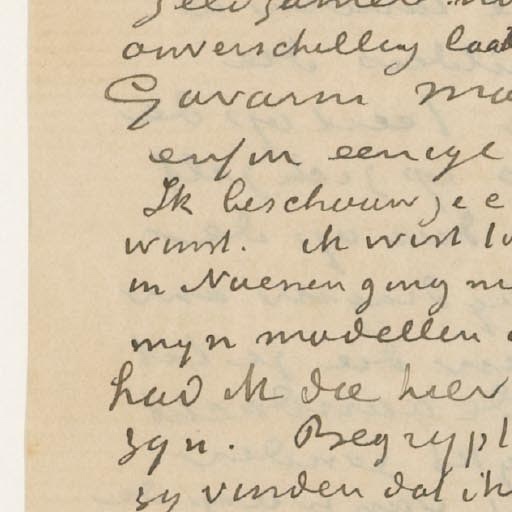 onverschillig laat
Gavarni
enfin eenige
Ik beschouw ze e
winst. ik wist
in Nuenen ging
myn modellen
had ik die hier
zyn. Begrypt
zy vinden dat ik